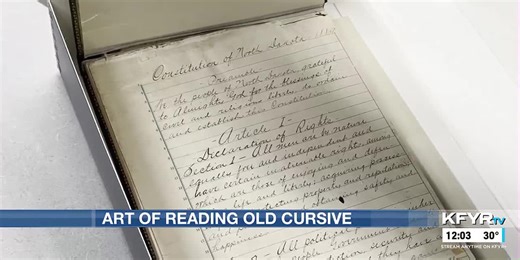 Constitution of North Dakota
Preamble
We the people of North Dakota, grateful
to Almighty God for the blessings of
civil and religious liberty, do ordain
and establish this Constitution.
Article I
Declaration of Rights
Section 1 - All men are by nature
equally free and independent and
have certain inalienable rights, among
which are those of enjoying and
life and liberty, acquiring
property and reputation,
obtaining safety and
happiness
2 - All political
people Government
security
and they have
ART OF READING OLD CURSIVE
KFYR tv
12:03 30°
STREAM ANYTIME ON KFYR